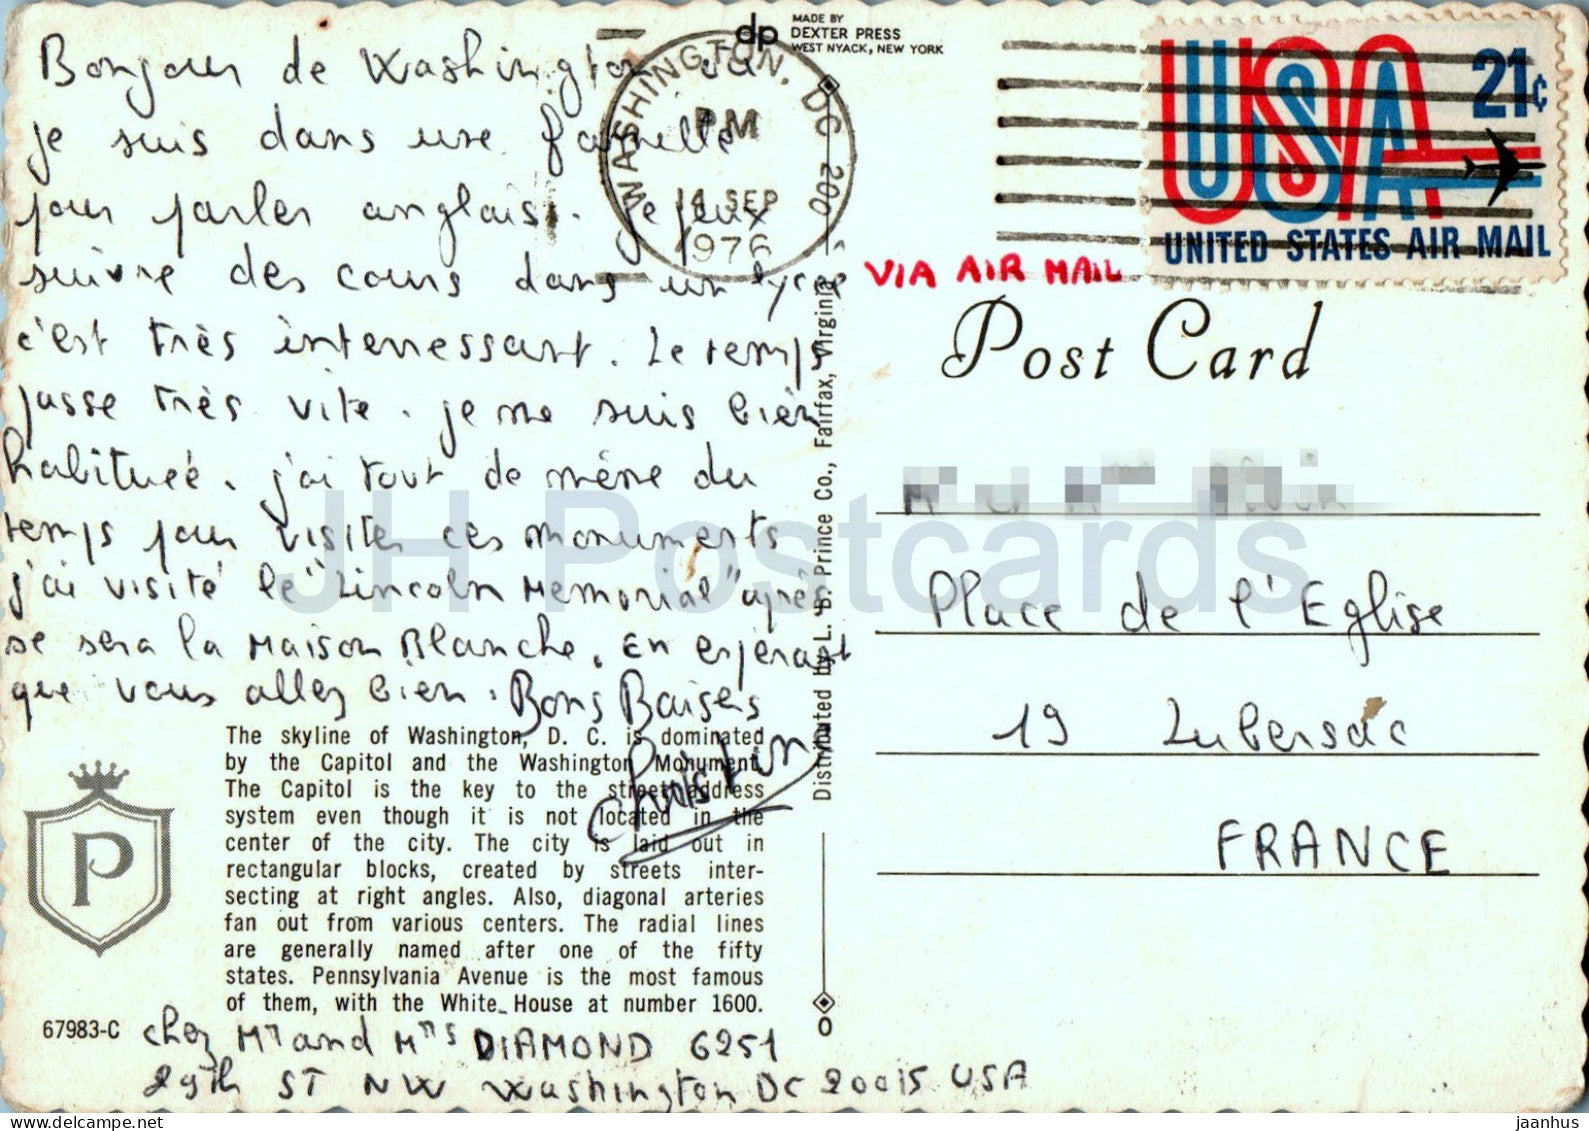 Bonjour de Washington où
je suis dans une famille
pour parler anglais. Je peux
suivre des cours dans un lycée
c'est très interressant. Le temps
passe très vite. je me suis bien
habituée. j'ai tout de même du
temps pour visiter ces monuments
j'ai visité le "Lincoln Memorial" après
se sera la Maison Blanche. En espérant
que vous allez bien. Bons Baisers
Christin
The skyline of Washington, D. C. is dominated
by the Capitol and the Washington Monument.
The Capitol is the key to the street address
system even though it is not located in the
center of the city. The city is laid out in
rectangular blocks, created by streets inter-
secting at right angles. Also, diagonal arteries
fan out from various centers. The radial lines
are generally named after one of the fifty
states. Pennsylvania Avenue is the most famous
of them, with the White House at number 1600.
P
67983-C
chez Mr and Mrs DIAMOND 6251
29th ST NW Washington DC 20015 USA
dp
MADE BY
DEXTER PRESS
WEST NYACK, NEW YORK
WASHINGTON, DC 200
PM
14 SEP
1976
Distributed by L. B. Prince Co., Fairfax, Virginia
USA
21¢
UNITED STATES AIR MAIL
VIA AIR MAIL
Post Card
Place de l'Eglise
19 Lubersac
FRANCE
JH Postcards
jaanhus